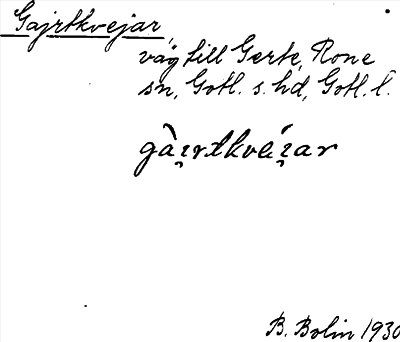 Gajrtkvejar,
väg till Gerte, Rone
sn, Gotl. s. hd, Gotl. l.
gàı̯rtkvéı̯ar
B. Bolin 1930